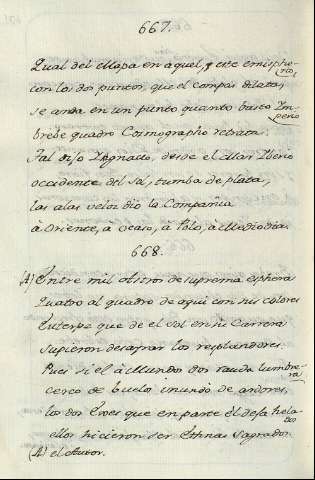 667.
Qual del Mapa en aquel, y este emisphe-
rio,
con los dos puntos, que el compas dilata,
se anda en un punto quanto basto Im-
perio
brebe quadro Cosmographo retrata:
Tal dijo Ygnacio, desde el Mar Iberio
occidente del Sol, tumba de plata,
las alas veloz dió la Compañia
à Oriente, à ocaso, à Polo, à Mediodia.
668.
(A) Entre mil Astros de suprema esphera
quatro al quadro de aqui con sus colores
Euterpe que de el Sol en su Carrera
supieron desafiar los resplandores:
Pues si él à Mundos dos rauda lumbre-
ra
cerco de buelo inundó de ardores,
los dos Exes que en parte él deja hela-
dos
ellos hicieron ser Ethnas sagrados
(A) el Autor.